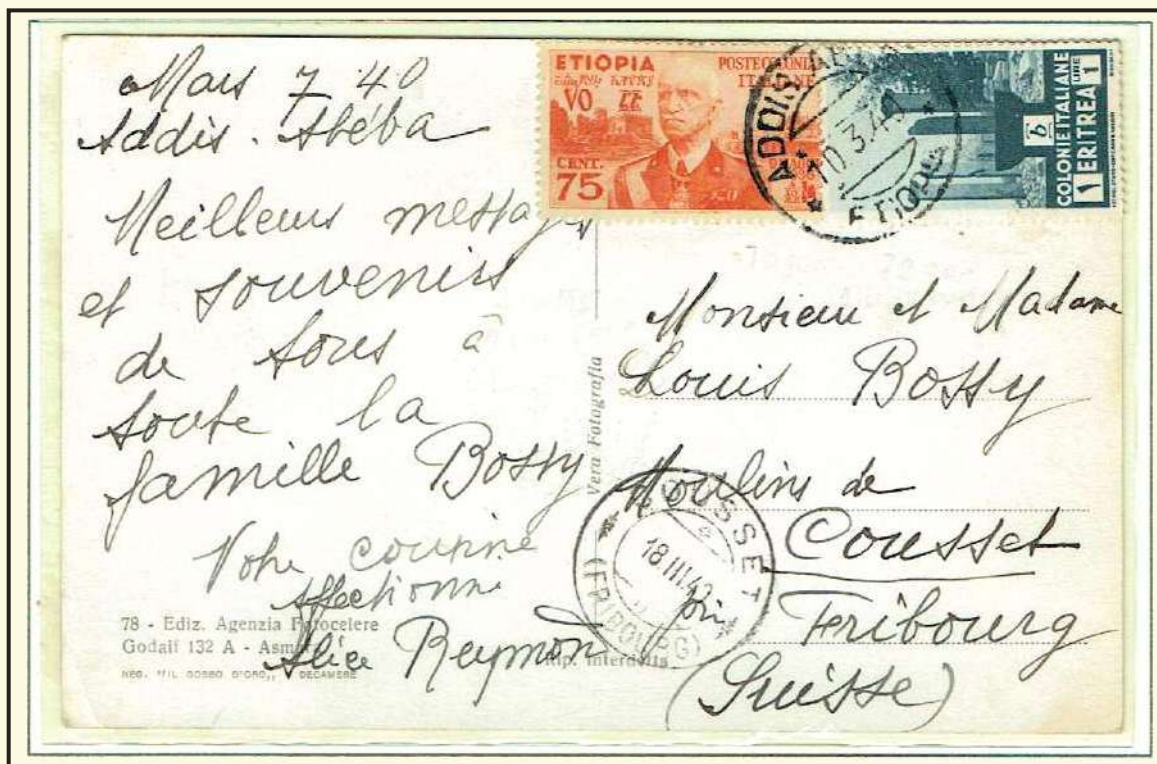 Mars 7 40
Addis. Abéba
Meilleurs messages
et souvenirs
de tous à
toute la
famille Bossy
Votre cousine
affectionné
Alice Reymon
78 - Ediz. Agenzia Fotocelere
Godaif 132 A - Asmara
NEG. "IL GOBBO D'ORO,, DECAMERE
Vera Fotografia
Rip. Interdetta
ETIOPIA
POSTE COLONIALI
ITALIANE
CENT.
75
COLONIE ITALIANE
1 ERITREA LIRE 1
ADDIS
10.3.40
ETIOPIA
Monsieur et Madame
Louis Bossy
Moulins de
Cousset
Fribourg
(Suisse)
COUSSET
18.III.40
(FRIBOURG)